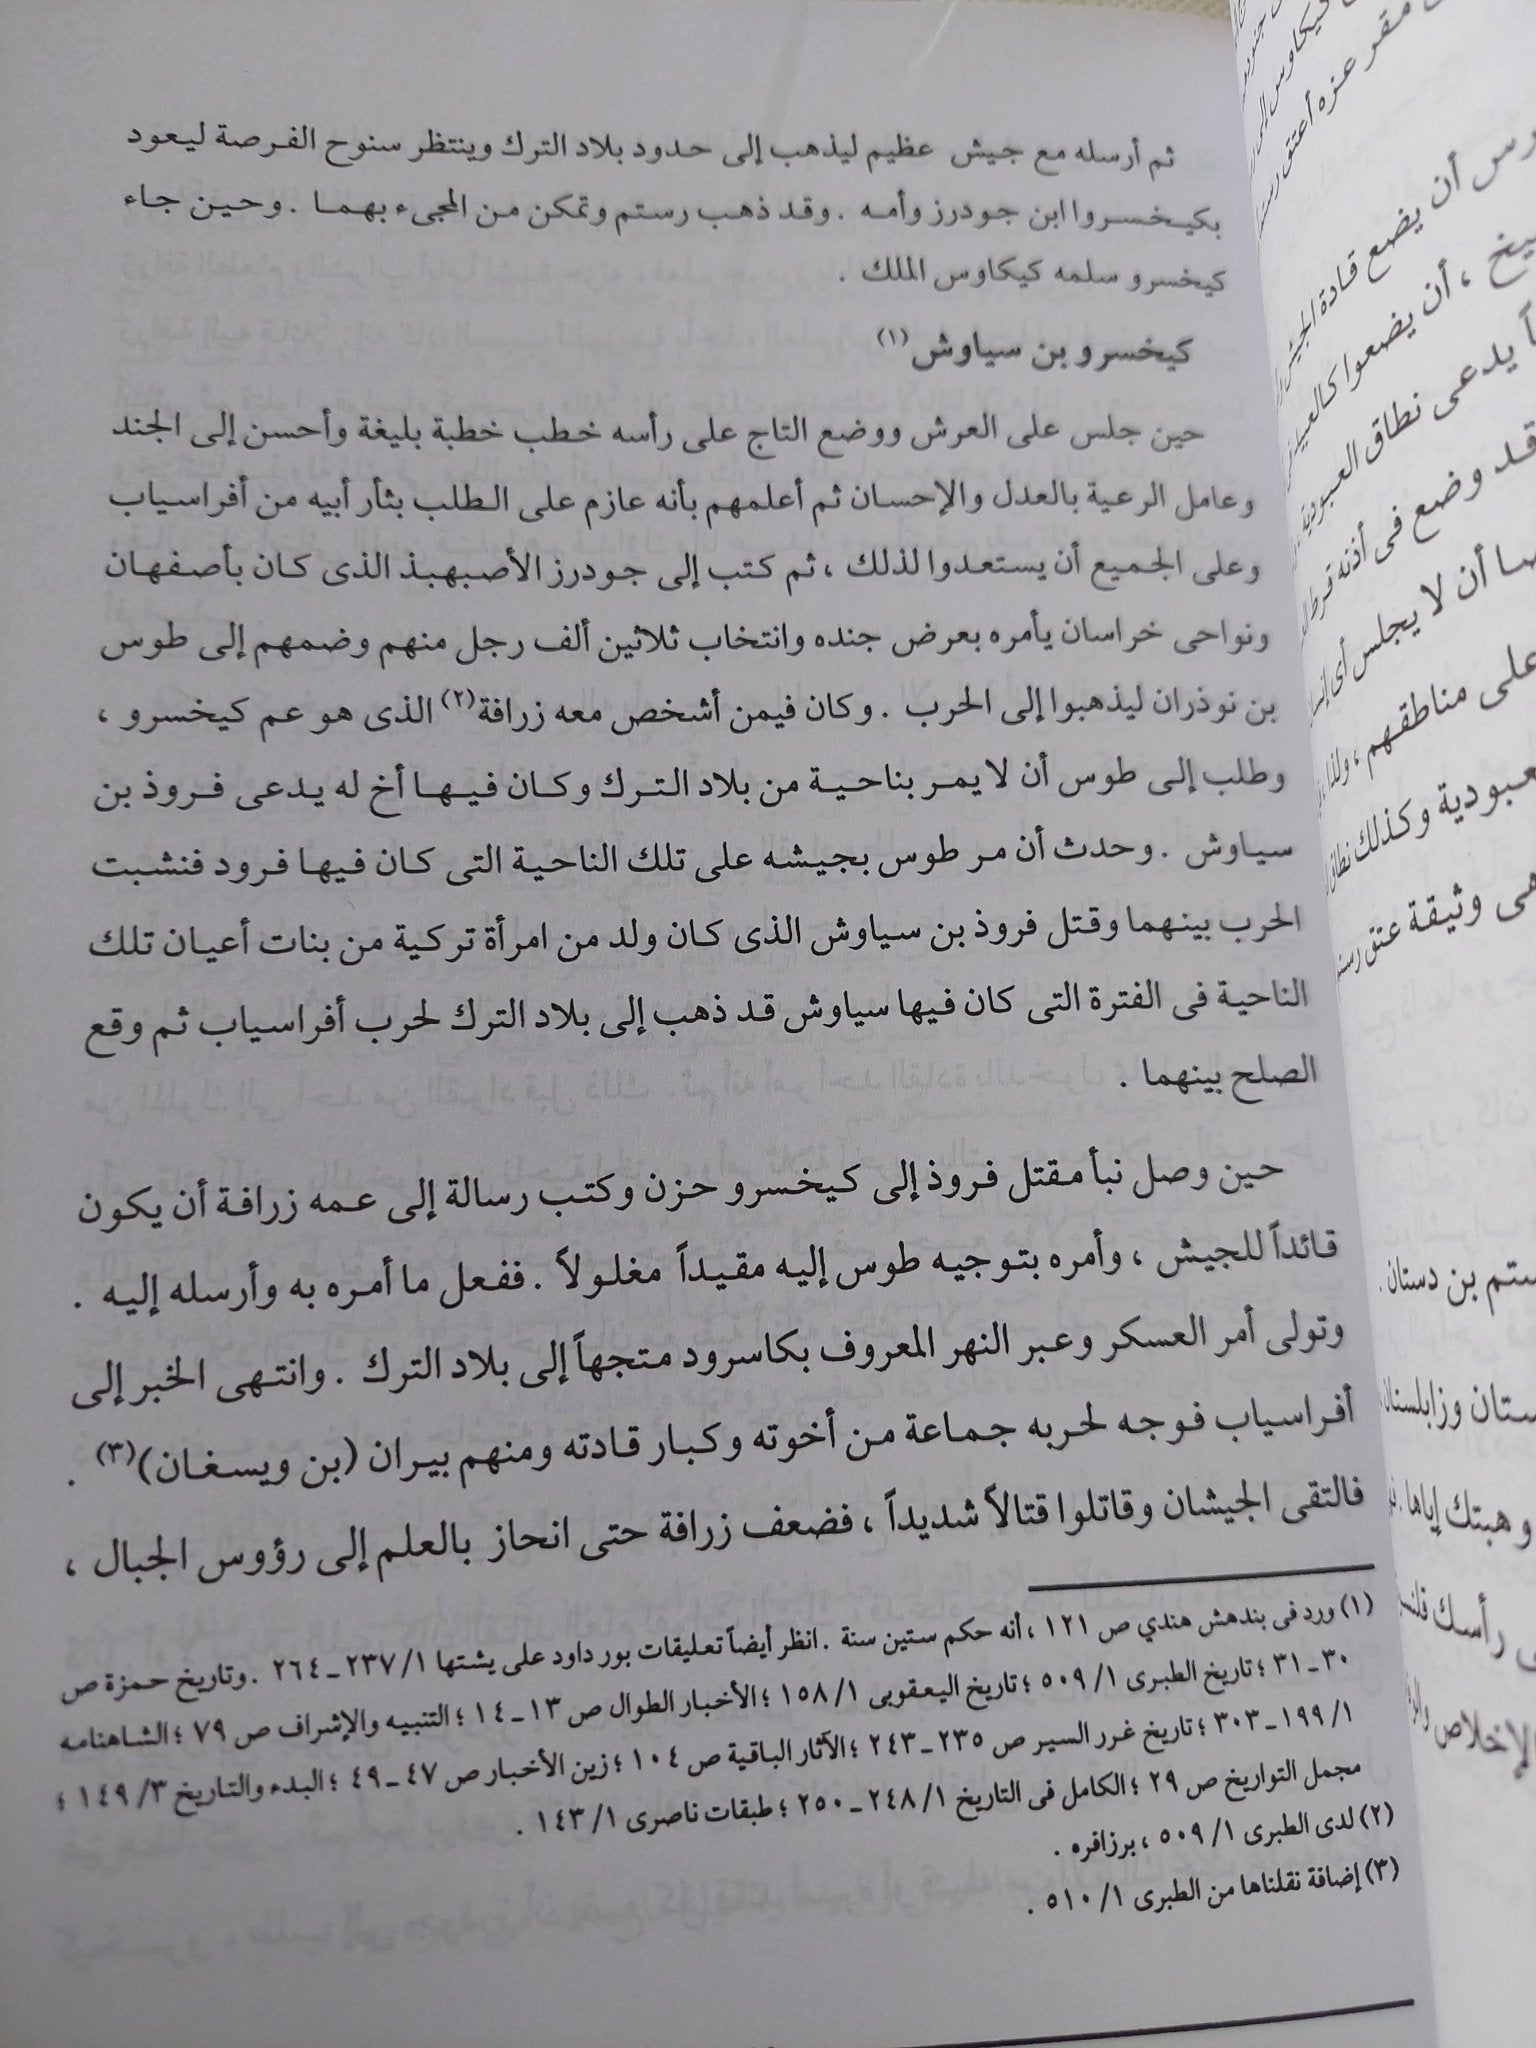 ثم أرسله مع جيش عظيم ليذهب إلى حدود بلاد الترك وينتظر سنوح الفرصة ليعود
بكيخسروا ابن جودرز وأمه . وقد ذهب رستم وتمكن من المجىء بهما . وحين جاء
كيخسرو سلمه كيكاوس الملك .
كيخسرو بن سياوش(١)
حين جلس على العرش ووضع التاج على رأسه خطب خطبة بليغة وأحسن إلى الجند
وعامل الرعية بالعدل والإحسان ثم أعلمهم بأنه عازم على الطلب بثأر أبيه من أفراسياب
وعلى الجميع أن يستعدوا لذلك ، ثم كتب إلى جودرز الأصبهبذ الذى كان بأصفهان
ونواحى خراسان يأمره بعرض جنده وانتخاب ثلاثين ألف رجل منهم وضمهم إلى طوس
بن نوذران ليذهبوا إلى الحرب . وكان فيمن أشخص معه زرافة(٢) الذى هو عم كيخسرو ،
وطلب إلى طوس أن لا يمر بناحية من بلاد الترك وكان فيها أخ له يدعى فروذ بن
سياوش . وحدث أن مر طوس بجيشه على تلك الناحية التى كان فيها فرود فنشبت
الحرب بينهما وقتل فروذ بن سياوش الذى كان ولد من امرأة تركية من بنات أعيان تلك
الناحية فى الفترة التى كان فيها سياوش قد ذهب إلى بلاد الترك لحرب أفراسياب ثم وقع
الصلح بينهما .
حين وصل نبأ مقتل فروذ إلى كيخسرو حزن وكتب رسالة إلى عمه زرافة أن يكون
قائداً للجيش ، وأمره بتوجيه طوس إليه مقيداً مغلولاً . ففعل ما أمره به وأرسله إليه .
وتولى أمر العسكر وعبر النهر المعروف بكاسرود متجهاً إلى بلاد الترك . وانتهى الخبر إلى
أفراسياب فوجه لحربه جماعة من أخوته وكبار قادته ومنهم بيران (بن ويسغان)(٣) .
فالتقى الجيشان وقاتلوا قتالاً شديداً ، فضعف زرافة حتى انحاز بالعلم إلى رؤوس الجبال ،
(١) ورد فى بندهش هندي ص ١٢١ ، أنه حكم ستين سنة . انظر أيضاً تعليقات بور داود على يشتها ١/ ٢٣٧ ـ ٢٦٤ . وتاريخ حمزة ص
٣٠ ـ ٣١ ؛ تاريخ الطبرى ١/ ٥٠٩ ؛ تاريخ اليعقوبى ١/ ١٥٨ ؛ الأخبار الطوال ص ١٣ ـ ١٤ ؛ التنبيه والإشراف ص ٧٩ ؛ الشاهنامه
١/ ١٩٩ ـ ٣٠٣ ؛ تاريخ غرر السير ص ٢٣٥ ـ ٢٤٣ ؛ الآثار الباقية ص ١٠٤ ؛ زين الأخبار ص ٤٧ ـ ٤٩ ؛ البدء والتاريخ ٣/ ١٤٩ ؛
مجمل التواريخ ص ٢٩ ؛ الكامل فى التاريخ ١/ ٢٤٨ ـ ٢٥٠ ؛ طبقات ناصرى ١/ ١٤٣ .
(٢) لدى الطبرى ١/ ٥٠٩ ، برزافره .
(٣) إضافة نقلناها من الطبرى ١/ ٥١٠ .
مقر عزه أعتق
أن يضع قادة
، أن يضعوا
يدعى نطاق العبودية
وضع فى أذنه
أن لا يجلس أى
على مناطقهم ، ولذا
وكذلك
وثيقة عتق
بن دستان
وزابلستان
وهبتك إياها
رأسك